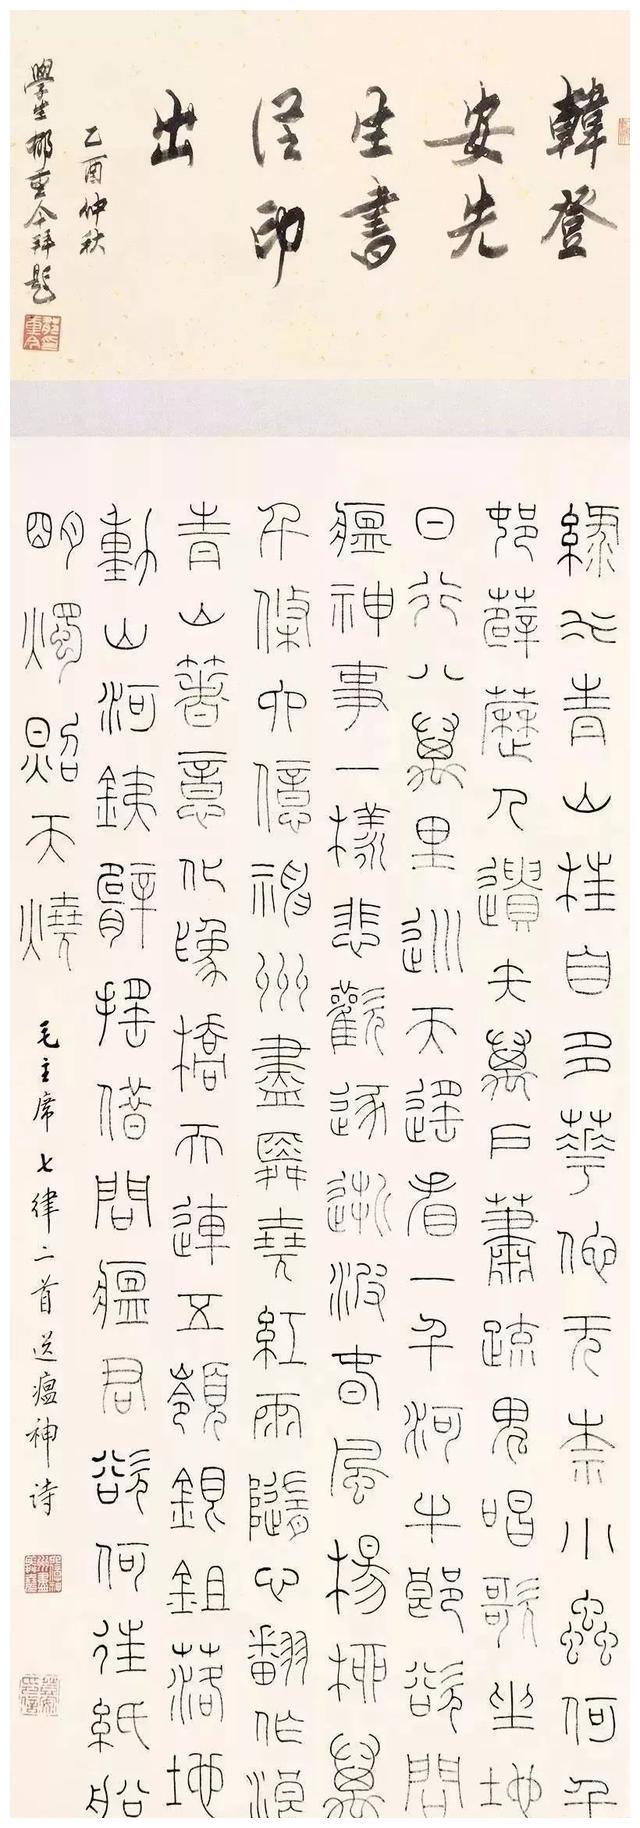 韓登
安先
生書
從印
出
乙酉仲秋
學生郁重今拜題
綠水青山枉自多華佗无奈小蟲何千
邨薜荔人遺矢萬戶蕭疏鬼唱歌坐地
日行八萬里巡天遙看一千河牛郎欲問
瘟神事一樣悲歡逐逝波春風楊柳萬
千條六億神州盡舜堯紅雨隨心翻作浪
青山著意化爲橋天連五嶺銀鉏落地
動山河鐵臂搖借問瘟君欲何往紙船
明燭照天燒
毛主席七律二首送瘟神诗